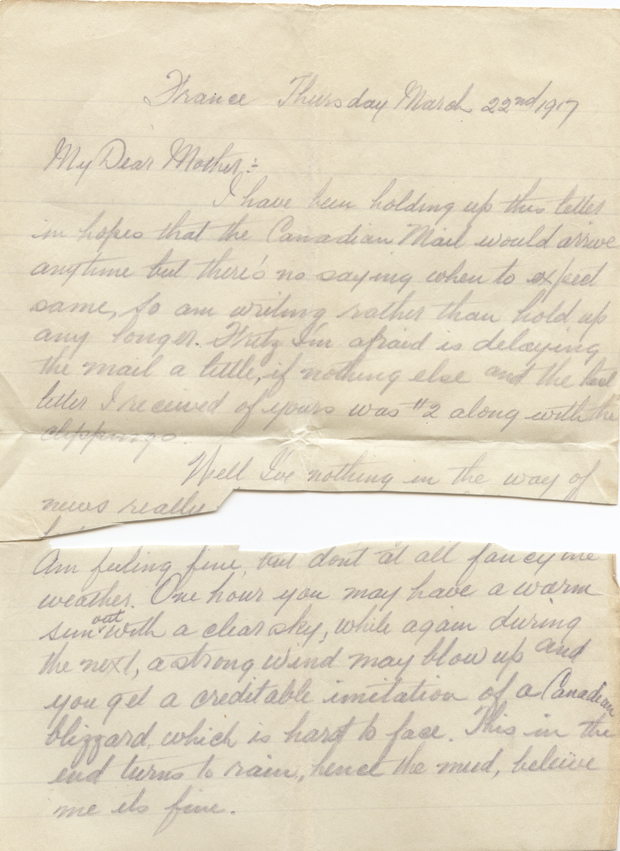 France Thursday March 22nd/1917
My Dear Mother:-
I have been holding up this letter
in hopes that the Canadian Mail would arrive
anytime but there's no saying when to expect
same, so am writing rather than hold up
any longer. Fritz I'm afraid is delaying
the mail a little, if nothing else and the last
letter I received of yours was #2 along with the
clippings.
Well I've nothing in the way of
news really
Am feeling fine, but don't at all fancy the
weather. One hour you may have a warm
sun out with a clear sky, while again during
the next, a strong wind may blow up and
you get a creditable imitation of a Canadian
blizzard, which is hard to face. This in the
end turns to rain, hence the mud, beleive
me its fine.